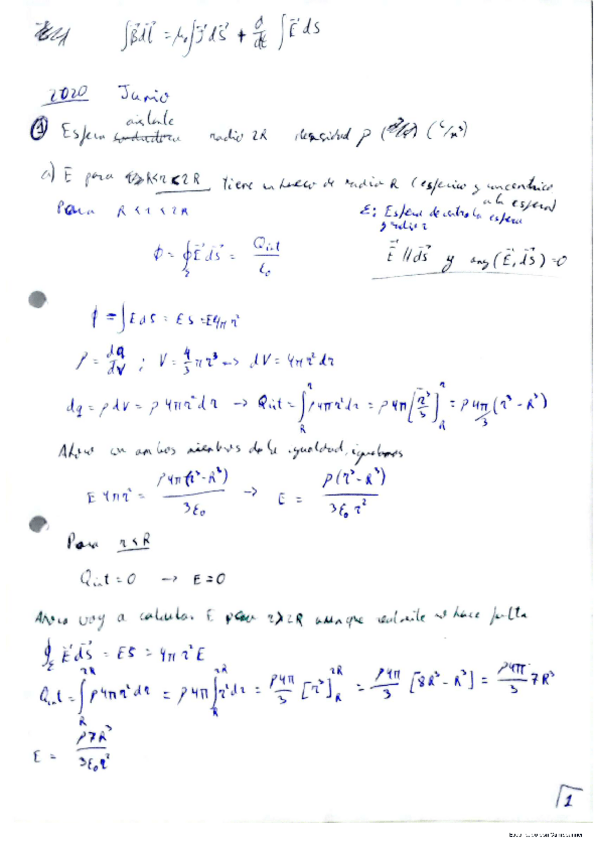 ∫B⃗dl⃗ = μ₀∫J⃗dS⃗ + d/dt ∫E⃗dS
2020 Junio
① Esfera aislante radio 2R densidad ρ (C/m³)
a) E para R<r<2R tiene un hueco de radio R (esférico y concéntrico a la esfera)
Para R<r<2R
Σ: Esfera de control esfera
y radio r
E⃗ // dS⃗ y ang(E⃗, dS⃗)=0
ϕ = ∮_Σ E⃗ dS⃗ = Qint/ε₀
ϕ = ∫E dS = ES = E4πr²
ρ = dq/dV ; V = 4/3 πr³ → dV = 4πr²dr
dq = ρdV = ρ4πr²dr → Qint = ∫_R^r ρ4πr²dr = ρ4π[r³/3]_R^r = ρ4π/3 (r³-R³)
Ahora en ambos miembros de la igualdad, igualamos
E4πr² = ρ4π(r³-R³)/3ε₀ → E = ρ(r³-R³)/3ε₀r²
Para r<R
Qint=0 → E=0
Ahora voy a calcular E para r>2R aunque realmente no hace falta
∮_Σ E⃗dS⃗ = ES = 4πr²E
Qint = ∫_R^2R ρ4πr²dr = ρ4π∫_R^2R r²dr = ρ4π/3 [r³]_R^2R = ρ4π/3 [8R³-R³] = ρ4π/3 7R³
E = ρ7R³/3ε₀r²
1